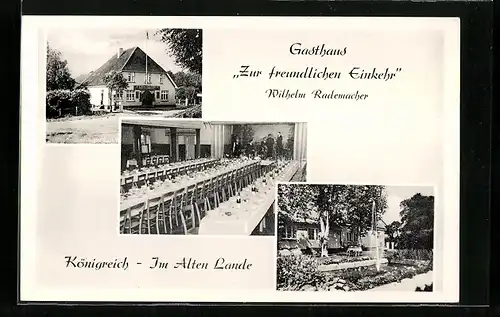 Gasthaus
„Zur freundlichen Einkehr"
Wilhelm Rademacher
Königreich - Im Alten Lande